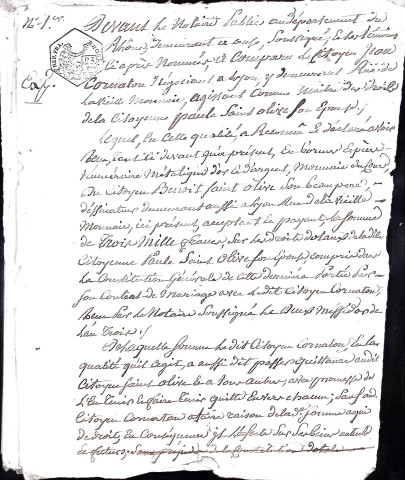 N.° 1.er
Devant le Notaire Public au département du
Rhône, demeurant à soussigné, et les témoins
ci après Nommés, a comparu le Citoyen Jean
Cornaton Négociant à Lyon, y demeurant Rue de
la vieille Monnoie, agissant Comme Maître des droits
de la Citoyenne paule Saint olive son Epouse;
Lequel, en cette qualité, a Reconnu & déclaré avoir
Reçu, tant ci devant qu'à présent, en bonnes Espèces
Numéraire Métalique d'or et d'argent, Monnoie du Cours,
du Citoyen Benoit Saint olive son beaupere,
dessinateur demeurant aussi à Lyon Rue de la Vieille
Monnoie, ici présent, acceptant et payant, la somme
de Trois Mille francs, sur les droits dotaux de la dite
Citoyenne Paule Saint Olive son Epouse, compris dans
la Constitution Générale de cette dernière Portée par
son Contrat de Mariage avec le dit Citoyen Cornaton,
Reçu par le Notaire Soussigné le Deux Messidor de
l'an Trois;
De laquelle somme le dit Citoyen Cornaton, en la
qualité qu'il agit, a aussi dit passé quittance au dit
Citoyen Saint olive & à tous autres, avec promesse de
l'En Tenir & faire Tenir quitte Envers chacun; Sauf au dit
Citoyen Cornaton à faire raison de la d.e somme à qui
de droit, En Conséquence il l'affecte sur ses biens actuels
& futurs; sans préjudice de la Constitution dotale